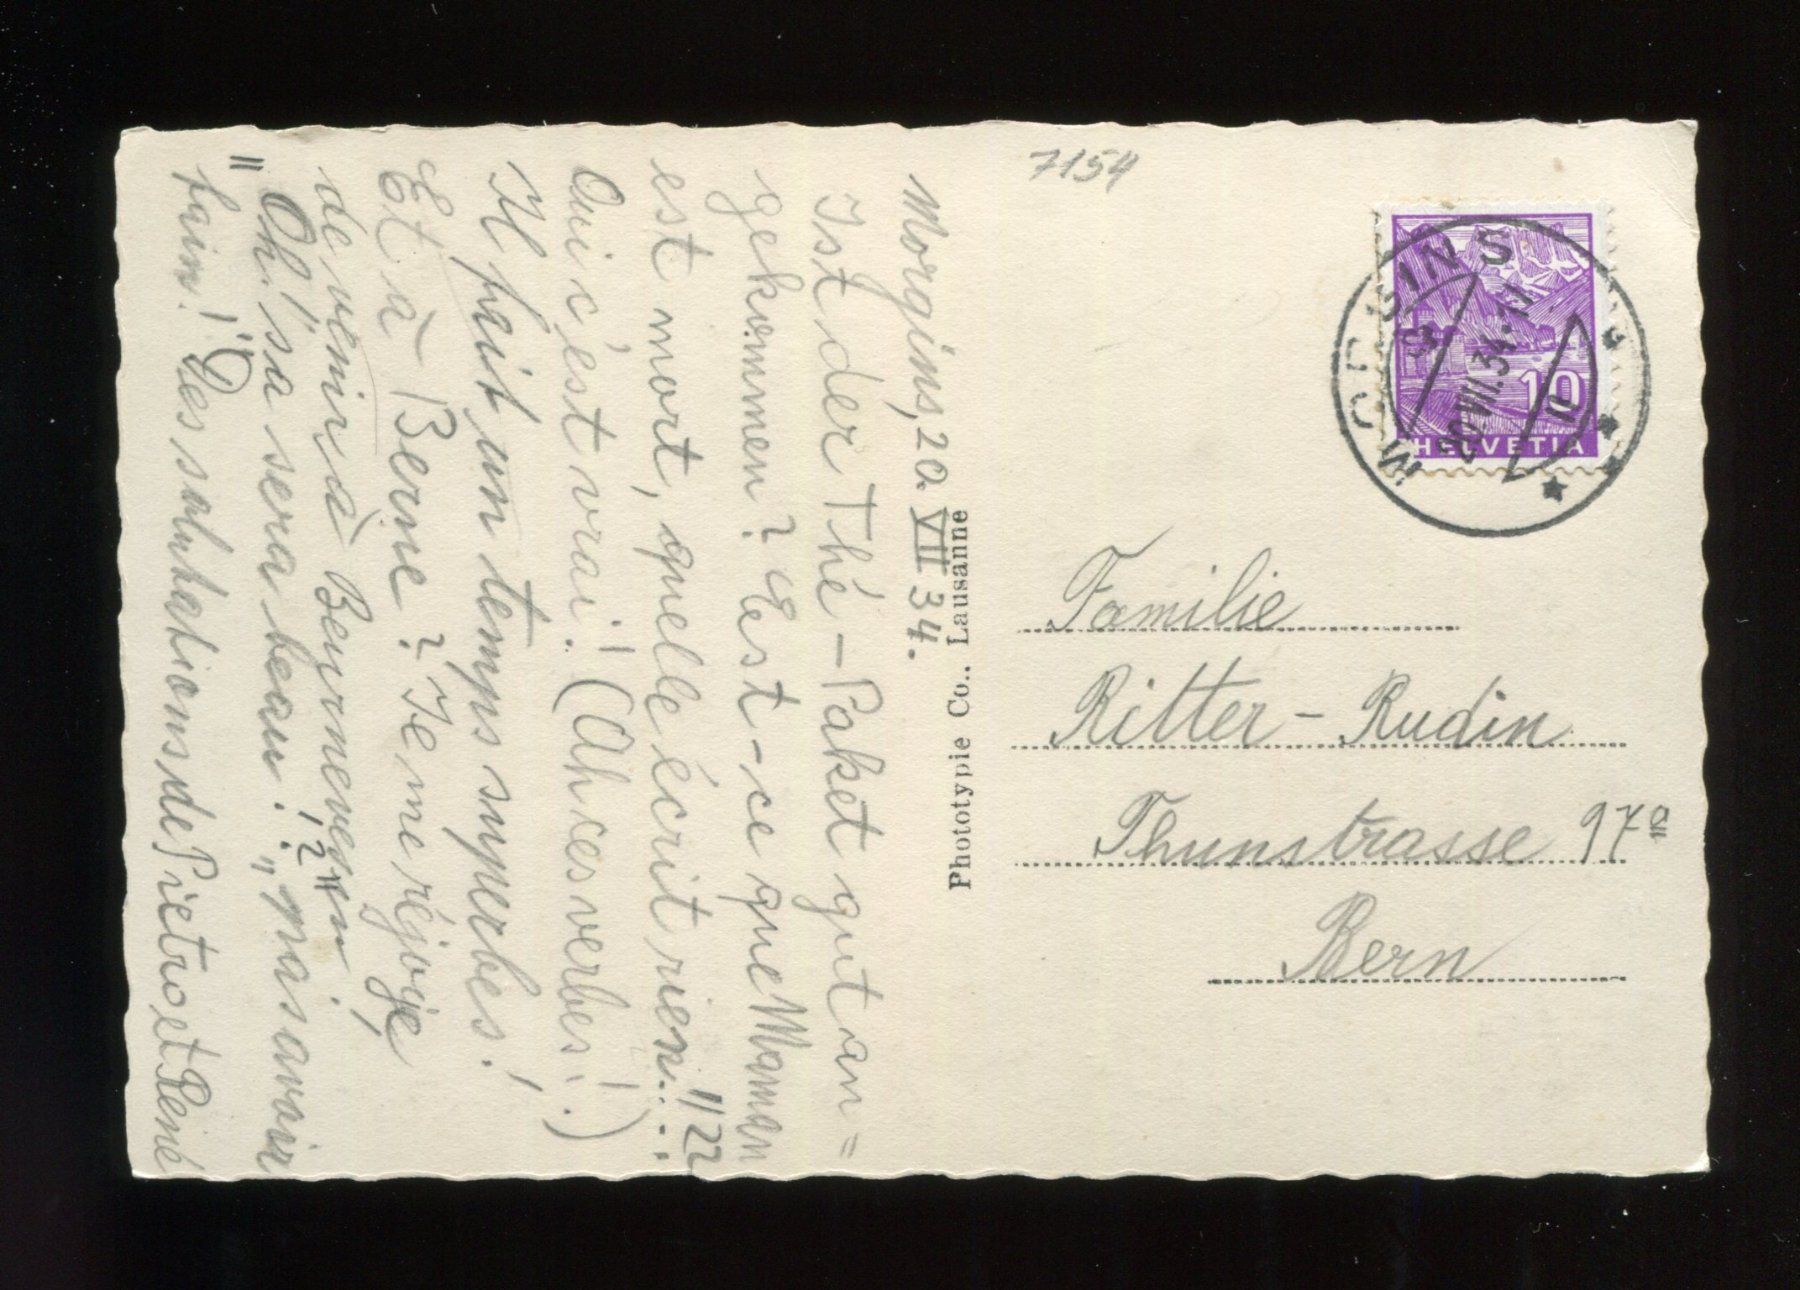 7154
Morgins, 20. VII 34.
Ist der Thé-Paket gut an=
gekommen? Est-ce que Maman
est mort, quelle écrit rien....!!??
Oui c'est vrai! (Ah ces verbes!)
Il fait un temps superbes!
Et à Berne? Je me réjouie,
de venir à Beurnevesin!
"Oh! sa sera beau!?" „Mas avoir
fain! !" Des saluhations de Pietro et René
Phototypie Co., Lausanne
MORGINS
20.VII.34.17
10
HELVETIA
Familie
Ritter-Rudin
Thunstrasse 97
Bern